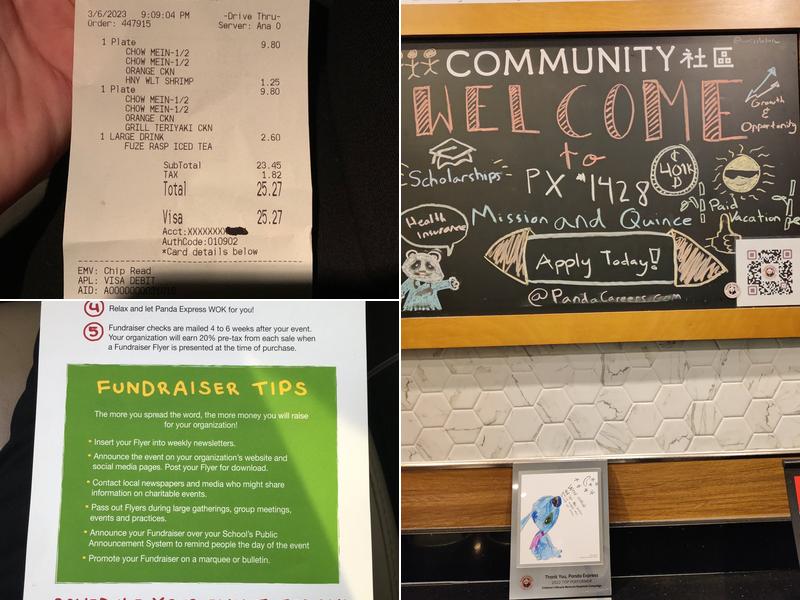 3/6/2023 9:09:04 PM -Drive Thru-
Order: 447915 Server: Ana O
1 Plate 9.80
CHOW MEIN-1/2
CHOW MEIN-1/2
ORANGE CKN
HNY WLT SHRIMP 1.25
1 Plate 9.80
CHOW MEIN-1/2
CHOW MEIN-1/2
ORANGE CKN
GRILL TERIYAKI CKN
1 LARGE DRINK 2.60
FUZE RASP ICED TEA
SubTotal 23.45
TAX 1.82
Total 25.27
Visa 25.27
Acct:XXXXXXXX
AuthCode:010902
*Card details below
EMV: Chip Read
APL: VISA DEBIT
COMMUNITY 社區
WELCOME
to
PX #1428
Mission and Quince
Growth
&
Opportunity
Scholarships
401K
Paid
Vacation
Health
Insurance
Apply Today!
@PandaCareers.com
4 Relax and let Panda Express WOK for you!
5 Fundraiser checks are mailed 4 to 6 weeks after your event.
Your organization will earn 20% pre-tax from each sale when
a Fundraiser Flyer is presented at the time of purchase.
FUNDRAISER TIPS
The more you spread the word, the more money you will raise
for your organization!
• Insert your Flyer into weekly newsletters.
• Announce the event on your organization's website and
social media pages. Post your Flyer for download.
• Contact local newspapers and media who might share
information on charitable events.
• Pass out Flyers during large gatherings, group meetings,
events and practices.
• Announce your Fundraiser over your School's Public
Announcement System to remind people the day of the event
• Promote your Fundraiser on a marquee or bulletin.
Thank You, Panda Express
2022 TOP PERFORMER